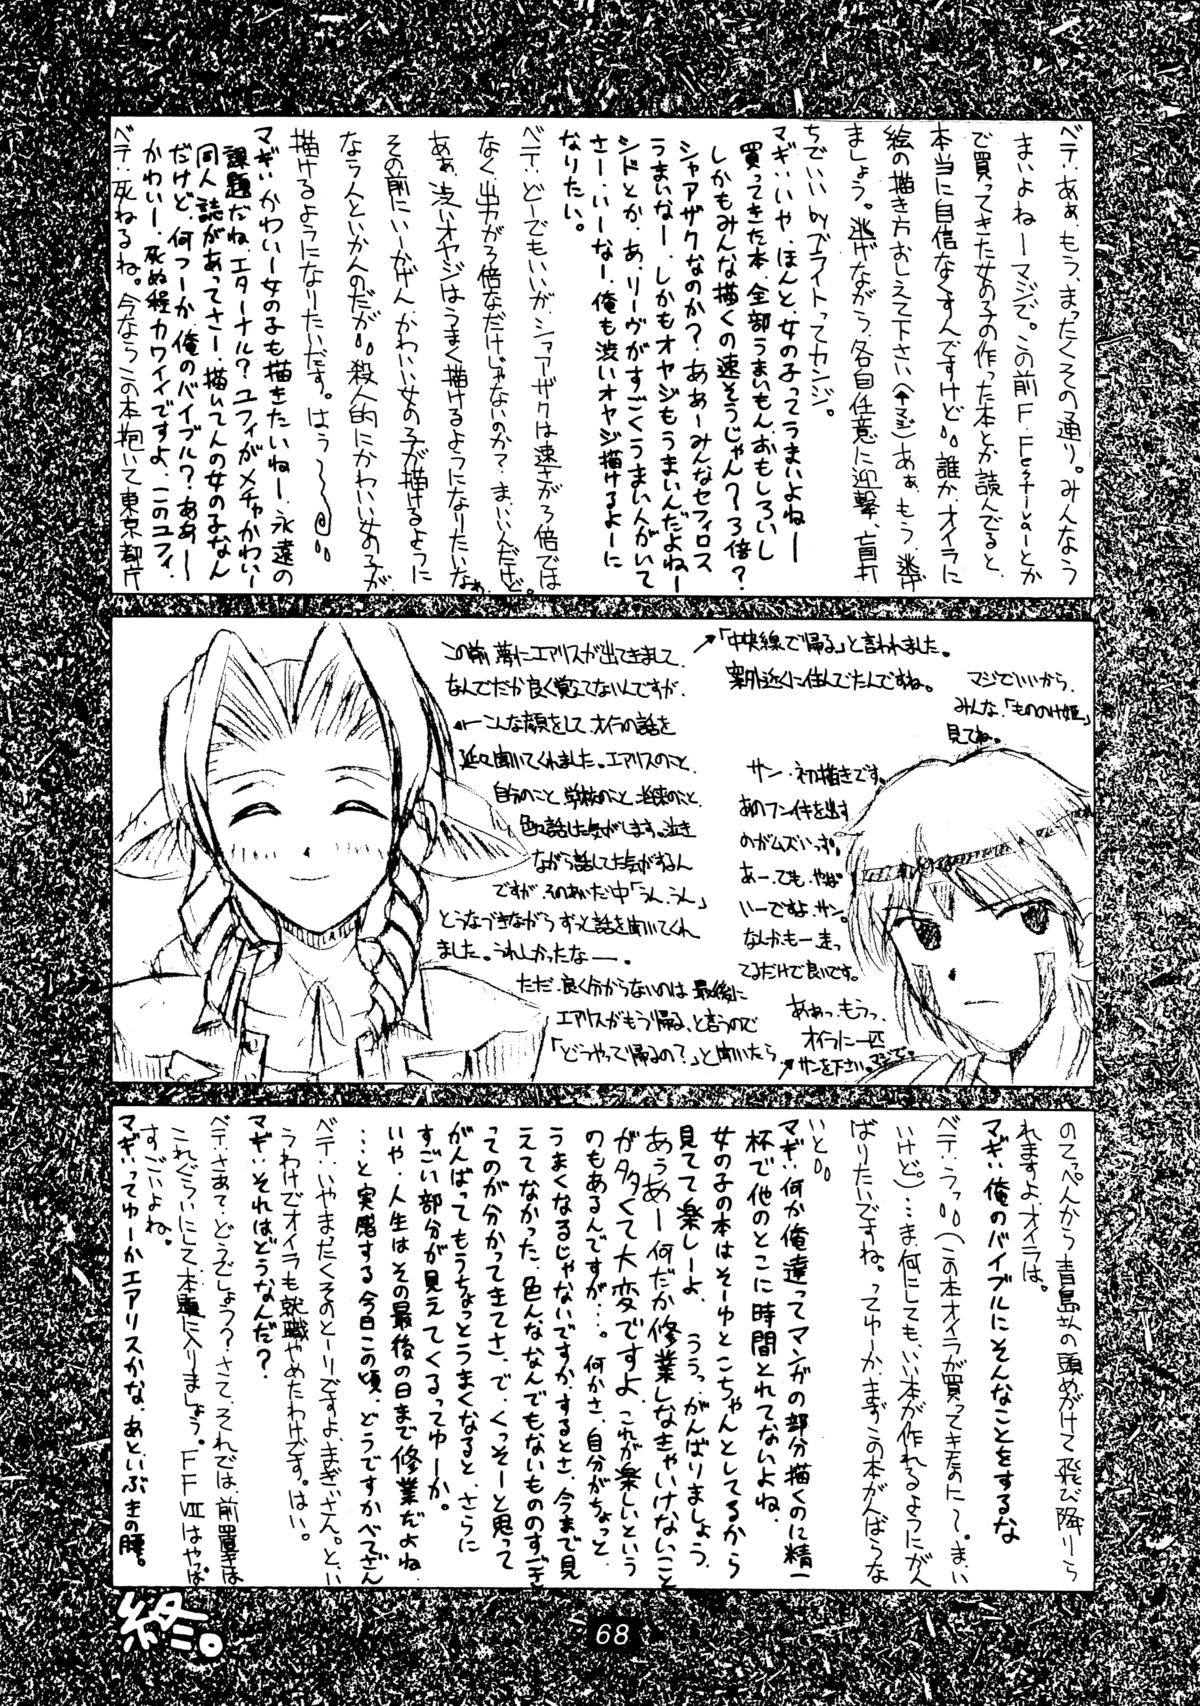 ベテ：あぁ、もう、まったくその通り。みんなう
まいよねーマジで。この前F.Festivalとか
で買ってきた女の子の作った本とか読んでると、
本当に自信なくすんですけど。誰か、オイラに
絵の描き方おしえて下さい(←マジ)あぁ、もう、逃げ
ましょう。逃げながら、各自任意に迎撃、盲打
ちでいいbyブライトってカンジ。
マギ：いや、ほんと、女の子ってうまいよねー
買ってきた本、全部うまいもん、おもしろいし
しかもみんな描くの速そうじゃん?3倍?
シャアザクなのか?ああーみんなセフィロス
うまいなー、しかもオヤジもうまいんだよねー
シドとか、あ、リーヴがすごくうまい人がいて
さー、いーなー、俺も渋いオヤジ描けるよーに
なりたい。
ベテ：どーでもいいが、シャアザクは速さが3倍では
なく、出力が3倍なだけじゃないのか?ま、いいんだけど。
あぁ、渋いオヤジはうまく描けるようになりたいなぁ
その前にいーかげん、かわいい女の子が描けるように
ならんといかんのだが。殺人的にかわいい女の子が
描けるようになりたいだす。はぅ〜
マギ：かわいー女の子も描きたいねー、永遠の
課題だね、エターナル?ユフィがメチャかわいー
同人誌があってさー、描いてんの女の子なん
だけど、何つーか俺のバイブル?ああー
かわいー、死ぬ程カワイイですよ、このユフィ、
ベテ：死ねるね。今ならこの本抱いて東京都庁
「中央線で帰る」と言われました。
案外近くに住んでたんですね。
マジでいいから、
みんな、「もののけ姫」
見てね。
サン・初描きです。
あのフン囲を出す
のがムズいっす。
あー、でも、やっぱ
いーですよ、サン。
なんかもー、走っ
てるだけで良いです。
あぁっ、もうっ、
オイラに一匹
サンを下さい。マジで。
この前、夢にエアリスが出てきまして、
なんでだか良く覚えてないんですが、
←こんな顔をして、オイラの話を
延々聞いてくれました。エアリスのこと、
自分のこと、学校のこと、将来のこと、
色々話した気がします。泣き
ながら話してた気がするん
ですが、そのあいだ中「うん、うん」
とうなづきながらずっと話を聞いてくれ
ました。うれしかったなー。
ただ、良く分からないのは、最後に
エアリスがもう帰る、と言うので
「どうやって帰るの?」と聞いたら
のてっぺんから青島さんの頭めがけて飛び降りら
れますよ、オイラは。
マギ：俺のバイブルにそんなことをするな
ベテ：うっ(この本オイラが買ってきたのにて。ま、い
いけど。)…ま、何にしても、いい本が作れるようにがん
ばりたいですね。ってゆーか、まずこの本がんばらな
いと。
マギ：何か俺達ってマンガの部分描くのに精一
杯で他のとこに時間とれてないよね、
女の子の本はそーゆとこちゃんとしてるから
見てて楽しーよ、ううっ、がんばりましょう、
あぅあー何だか修業しなきゃいけないこと
がタタくて大変ですよ、これが楽しいという
のもあるんですが…。何かさ、自分がちょっと、
うまくなるじゃないですか、するとさ、今まで見
えてなかった、色んな、なんでもないもののすごさ
ってのが分かってきてさ、で、くっそーと思って
がんばってもうちょっとうまくなると、さらに
すごい部分が見えてくるってゆーか。
いや、人生はその最後の日まで修業だよね
…と実感する今日この頃、どうですかべてさん
ベテ：いやまったくそのとーりですよ、まぎぃさん。とい
うわけでオイラも就職やめたわけです。はい。
マギ：それはどうなんだ?
ベテ：さあて、どうでしょう?さて、それでは、前置きは
これぐらいにして本題に入りましょう。FFⅦはやっぱ
すごいよね。
マギ：ってゆーかエアリスかな、あといぶきの腰。
終。
68